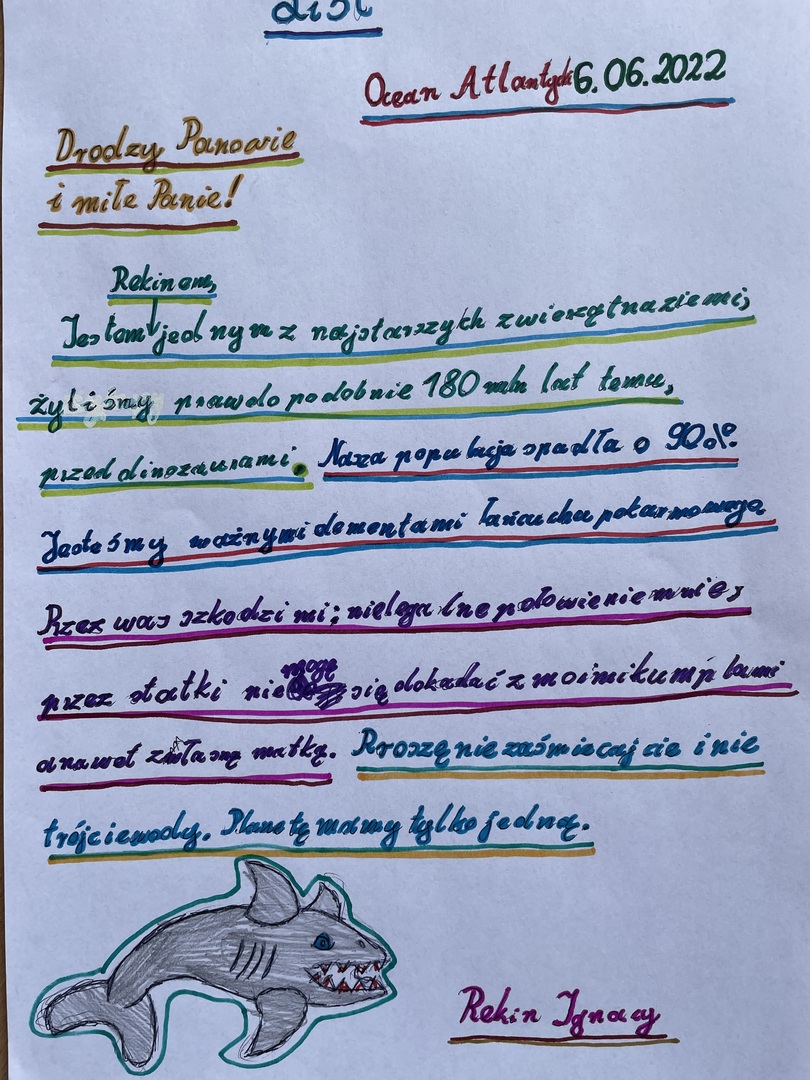 List
Ocean Atlantycki 6.06.2022
Drodzy Panowie
i miłe Panie!
Rekinem,
Jestem jednym z najstarszych zwierząt na ziemi,
żyliśmy prawdopodobnie 180 mln lat temu,
przed dinozaurami. Nasza populacja spadła o 90%.
Jesteśmy ważnymi elementami łańcuchu pokarmowego
Przez was szkodzi mi; nielegalne połowienie mnie,
przez statki nie mogę się dokadać z moimi kumplami
a nawet z własną matką. Proszę nie zaśmiecajcie i nie
trójcie wody. Planetę mamy tylko jedną.
Rekin Ignacy